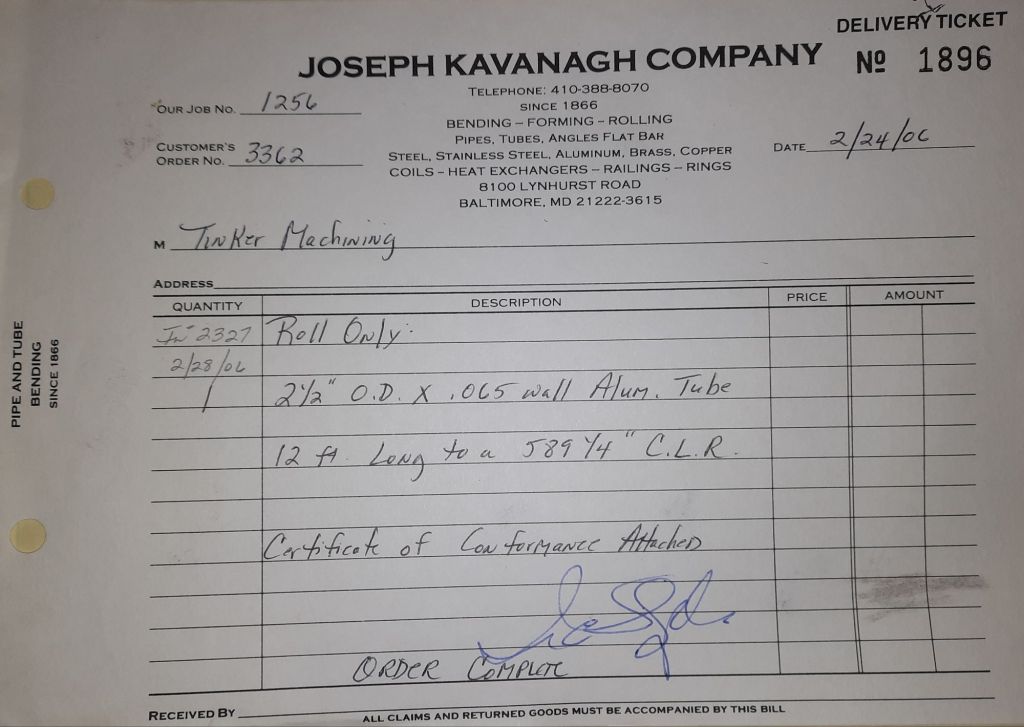 DELIVERY TICKET
JOSEPH KAVANAGH COMPANY
Nº 1896
TELEPHONE: 410-388-8070
SINCE 1866
BENDING – FORMING – ROLLING
PIPES, TUBES, ANGLES FLAT BAR
STEEL, STAINLESS STEEL, ALUMINUM, BRASS, COPPER
COILS – HEAT EXCHANGERS – RAILINGS – RINGS
8100 LYNHURST ROAD
BALTIMORE, MD 21222-3615
OUR JOB NO. 1256
CUSTOMER'S
ORDER NO. 3362
DATE 2/24/06
M Tinker Machining
ADDRESS
QUANTITY DESCRIPTION PRICE AMOUNT
In# 2327 Roll Only:
2/28/06
1 2 1/2" O.D. X .065 wall Alum. Tube
12 ft. Long to a 589 1/4" C.L.R.
Certificate of Conformance Attached
ORDER COMPLETE
RECEIVED BY
ALL CLAIMS AND RETURNED GOODS MUST BE ACCOMPANIED BY THIS BILL
PIPE AND TUBE
BENDING
SINCE 1866